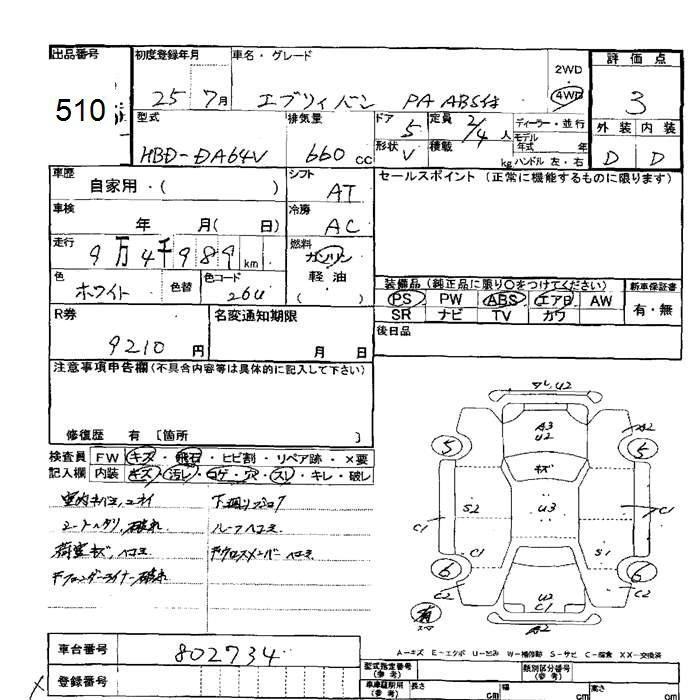 出品番号 初度登録年月 車名・グレード 評価点
510 25 7月 エブリィバン PA ABS付 2WD 4WD 3
型式 排気量 ドア 5 定員 2/4人 ディーラー・並行 外装 内装
HBD-DA64V 660 cc 形状 V 積載 kg モデル年式 年 ハンドル 左・右 D D
車歴 自家用・( ) シフト AT セールスポイント (正常に機能するものに限ります)
車検 年 月( 日) 冷房 AC
走行 9万4千989km 燃料 ガソリン 軽油 ( )
色 ホワイト 色替 色コード 26U
装備品 (純正品に限り○をつけてください) 新車保証書
PS PW ABS エアB AW 有・無
SR ナビ TV カワ
R券 9210円 名変通知期限 月 日 後日品
注意事項申告欄 (不具合内容等は具体的に記入して下さい)
修復歴 有 [箇所 ]
検査員 FW キズ・飛石・ヒビ割・リペア跡・×要
記入欄 内装 キズ・汚レ・コゲ・穴・スレ・キレ・破レ
下廻りサビ
ルーフヘコミ
A2 U2
A3
U2
A2
5 5
キズ
S2 U3 C1
C1 C1 S1
6 6
C2 U2 C2
C1
有 A2
A-キズ E-エクボ U-凹み W-補修跡 S-サビ C-腐食 XX-交換済
車台番号 802734
登録番号
型式指定番号 (参考) 類別区分番号 (参考)
車庫証明用 (参考) 長さ cm 幅 cm 高さ cm